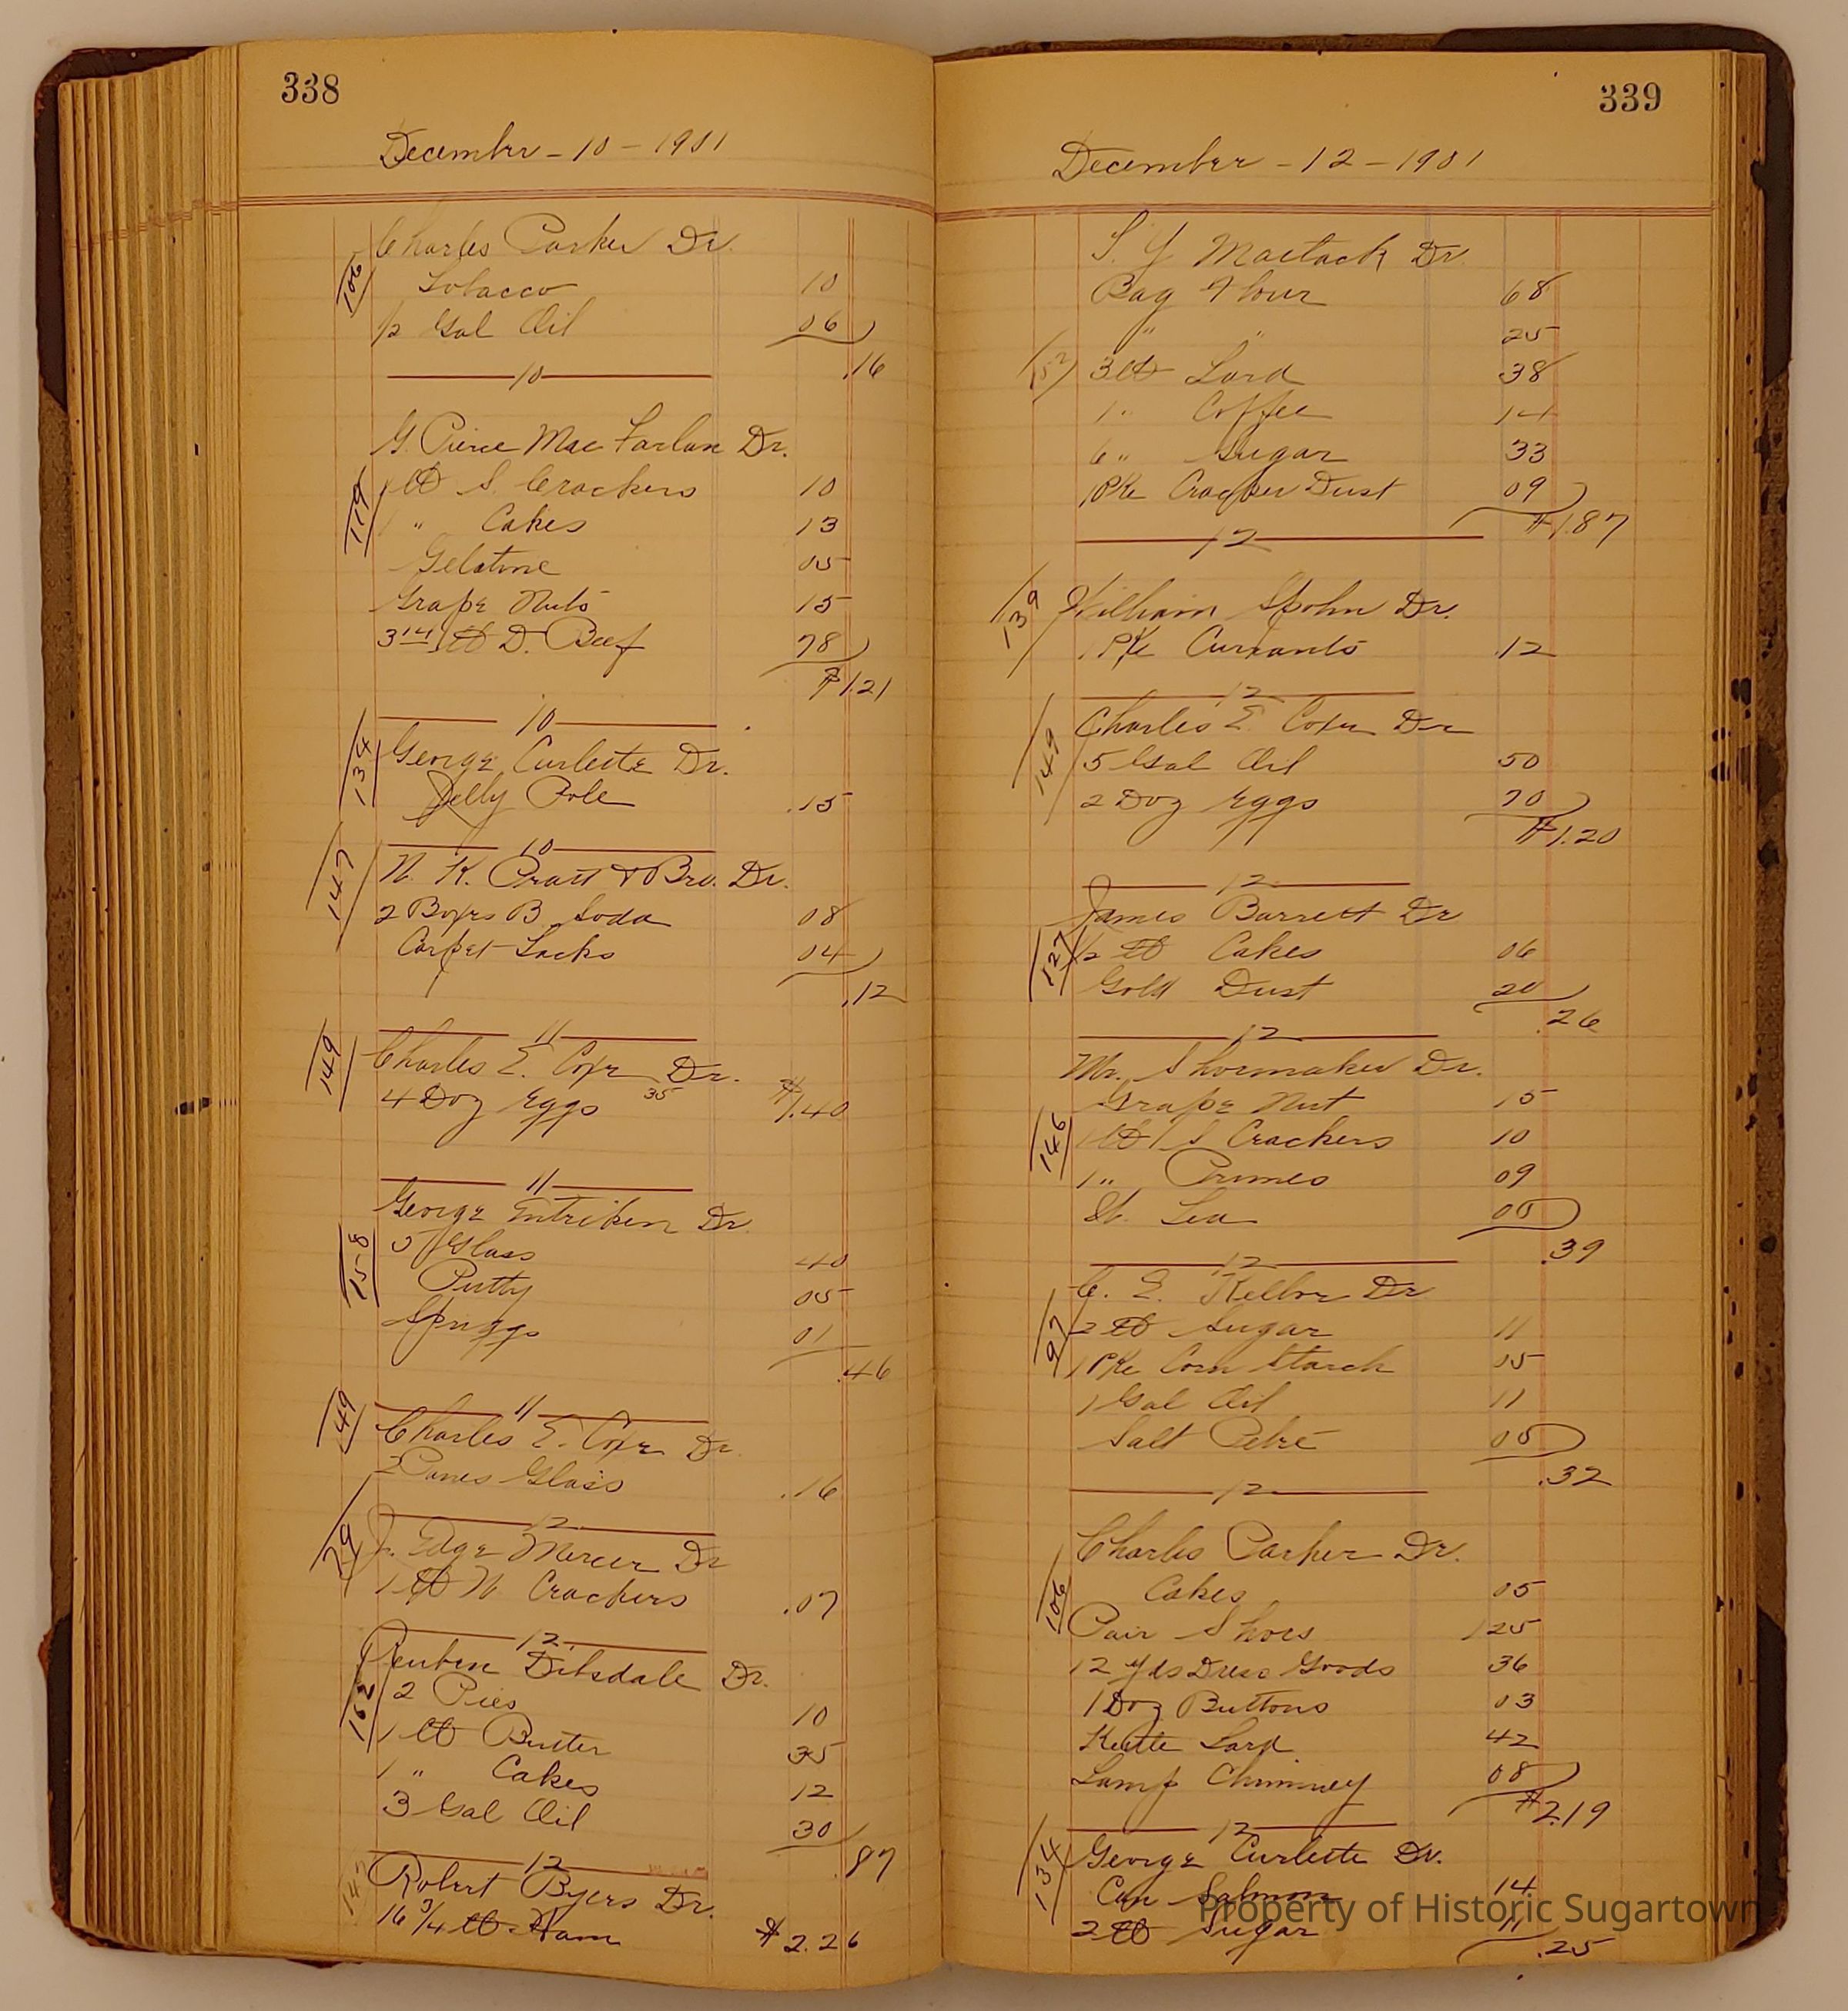 338
December - 10 - 1901
Charles Parker Dr.
106
Tobacco 10
1/2 Gal Oil 06
.16
10
G. Pierce Mac Farlan Dr.
119
1 lb S. Crackers 10
1 " Cakes 13
Gelatine 05
Grape Nuts 15
3 14 lb D. Beef 78
$1.21
10
134
George Curlette Dr.
Jelly Role .15
10
147
N. K. Pratt & Bro. Dr.
2 Boxes B Soda 08
Carpet Tacks 04
.12
11
149
Charles E. Coxe Dr.
4 Doz Eggs 35 $1.40
11
George Entriken Dr.
158
5 Glass 40
Putty 05
Spriggs 01
.46
11
149
Charles E. Coxe Dr.
2 Panes Glass .16
12
79
J. Edge Mercer Dr
1 lb N. Crackers .07
12
Reuben Dr.
162
2 Pies 10
1 lb Butter 35
1 " Cakes 12
3 Gal Oil 30
.87
12
Robert Byers Dr.
16 3/4 lb Ham $2.26
339
December - 12 - 1901
S. Y Dr.
Bag Flour 68
" " 25
152
3 lb Lard 38
1 " Coffee 14
6 " Sugar 33
1 Pke Cracker Dust 09
$1.87
12
139
William Spohn Dr.
1 Pke Currants .12
12
149
Charles E. Coxe Dr
5 Gal Oil 50
2 Doz Eggs 70
$1.20
12
James Barrett Dr
127
1/2 lb Cakes 06
Gold Dust 20
.26
12
Mr. Shoemaker Dr.
Grape Nut 15
146
1 lb S Crackers 10
1 " Prunes 09
St. Tea 05
.39
12
C. E. Dr
97
2 lb Sugar 11
1 Pke Corn Starch 05
1 Gal Oil 11
Salt Petre 05
.32
12
Charles Parker Dr.
106
Cakes 05
Pair Shoes 125
12 Yds Dress Goods 36
1 Doz Buttons 03
Kettle Lard 42
Lamp Chimney 08
$2.19
12
134
George Curlette Dr.
Can Salmon 14
2 lb Sugar 11
.25
Property of Historic Sugartown